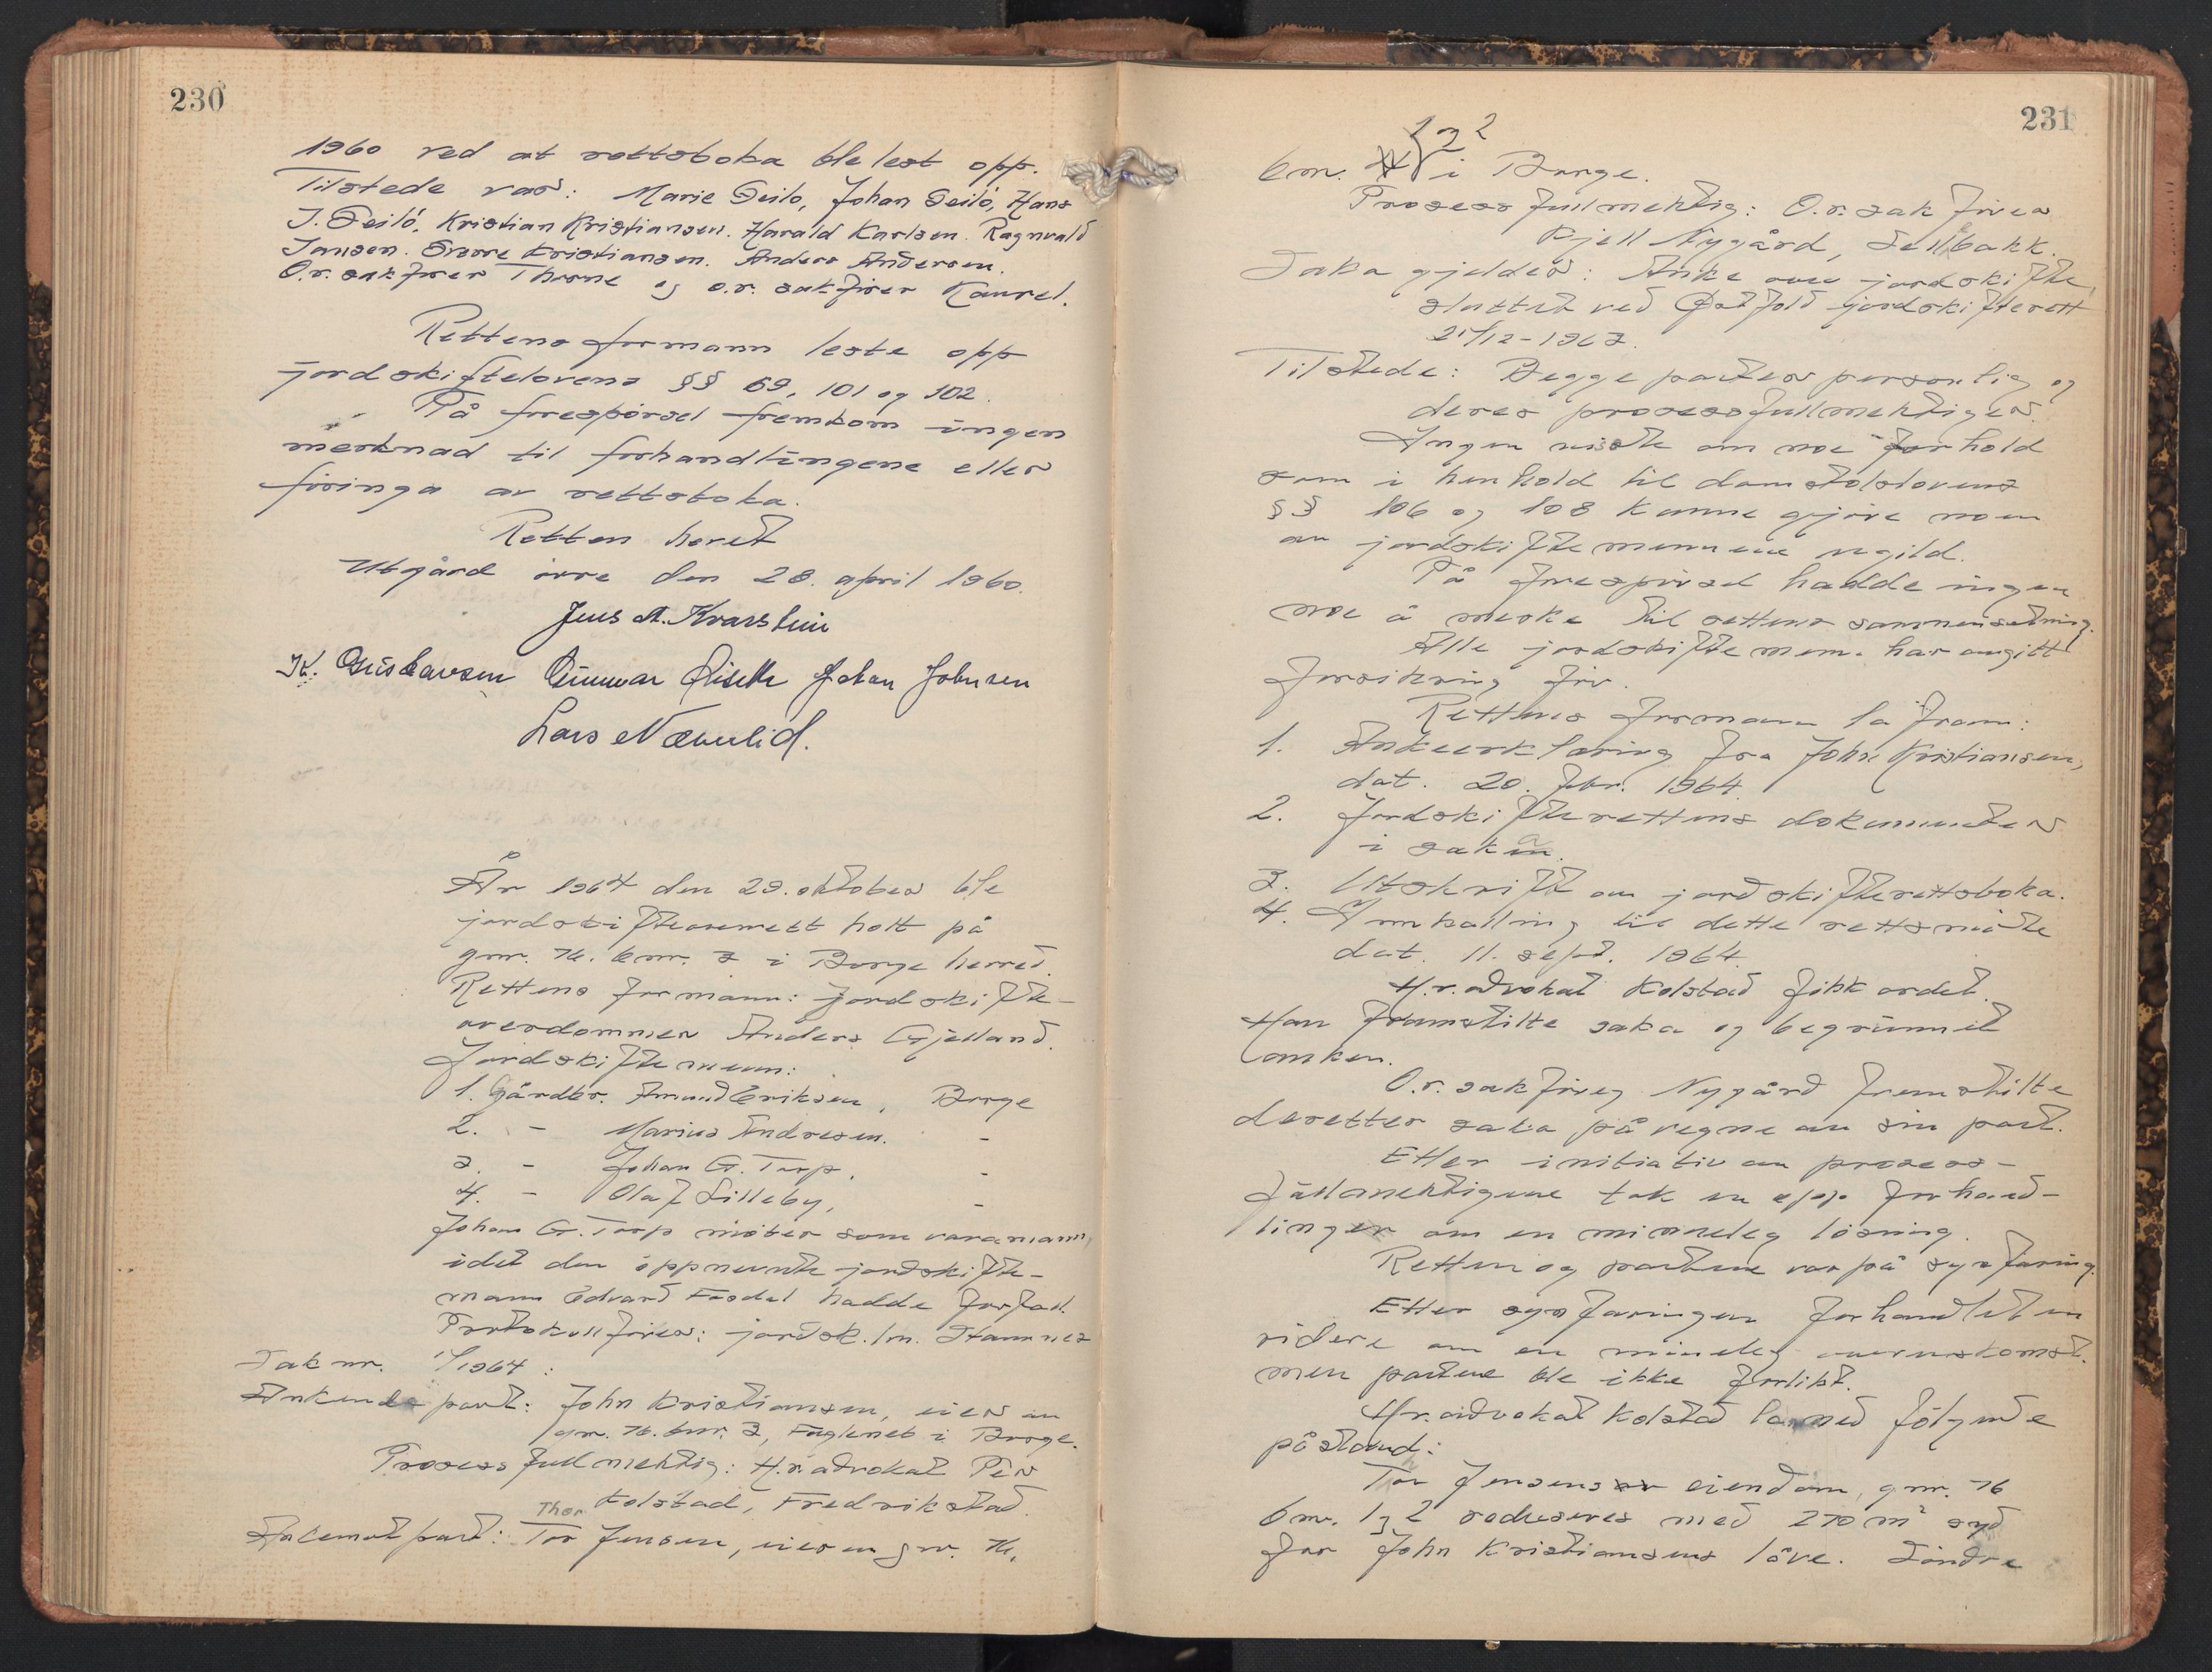 230
1960 ved at rettsboka ble lest opp.
Tilstede var: Marie Seilø, Johan Seilø, Hans
J. Seilø, Kristian Kristiansen. Harald Karlsen. Ragnvald
Jansen. Sverre Kristiansen. Anders Andersen.
O.r. sakfører Thorne og o.r. sakfører Kaurel.
Rettens formann leste opp
jordskiftelovens §§ 69, 101 og 102.
På forespørsel fremkom ingen
merknad til forhandlingene eller
føringa av rettsboka.
Retten hevet
Utgård øvre den 28. april 1960.
Jens A. Kvarstein
K. Gustavsen Gunnar Johan Johnsen
Lars Nævenlid.
År 1964 den 29. oktober ble
jordskifteoverrett holt på
gnr. 76. bnr. 3 i Borge herred.
Rettens formann: jordskifte-
overdommer Anders Gjelland.
Jordskiftemenn:
1. Gårdbr. Amund Eriksen, Borge
2. - Marius Andresen. -
3. - Johan G. Torp, -
4. - Olaf Lilleby, -
Johan G. Torp møter som varamann,
idet den oppnevnte jordskifte-
mann Edvard hadde forfall.
Protokollfører: jordsk.ln. Stammes
Sak nr. 1/1964:
Ankende part: John Kristiansen, eier av
gnr. 76. bnr. 3, Fugleneb i Borge.
Prosessfullmektig: H.r.advokat Per
Kolstad, Fredrikstad.
Thor
Ankemotpart: Tor Jensen, eier av gnr. 76,
231
1 og 2
bnr. i Borge.
Prosessfullmektig: O.r.sakfører
Kjell Nygård, Sellbakk.
Saka gjelder: Anke over jordskifte,
sluttet ved Østfold jordskifterett
21/12-1963.
Tilstede: Begge parter personlig og
deres prosessfullmektiger.
Ingen visste om noe forhold
som i henhold til domstolslovens
§§ 106 og 108 kunne gjøre noen
av jordskiftemennene ugild.
På forespørsel hadde ingen
noe å merke til rettens sammensetning.
Alle jordskiftemenn har avgitt
forsikring før.
Rettens formann la fram:
1. Ankeerklæring fra John Kristiansen,
dat. 20. febr. 1964.
2. Jordskifterettens dokumenter
i saka.
3. Utskrift av jordskifterettsboka.
4. Innkalling til dette rettsmøte
dat. 11. sept. 1964.
H.r.advokat Kolstad fikk ordet.
Han framstilte saka og begrunnet
anken.
O.r.sakfører Nygård fremstilte
deretter saka på vegne av sin part.
Etter initiativ av prosess-
fullmektigene tok en opp forhand-
linger om en minnelig løsning.
Retten og partene var på synfaring.
Etter synfaringen forhandlet en
videre om en minnelig overenskomst.
men partene ble ikke forlikt.
H.r.advokat Kolstad la ned følgende
påstand:
Tor Jensens eiendom, gnr. 76
bnr. 1 og 2 reduseres med 270 m² syd
for John Kristiansens låve. Søndre